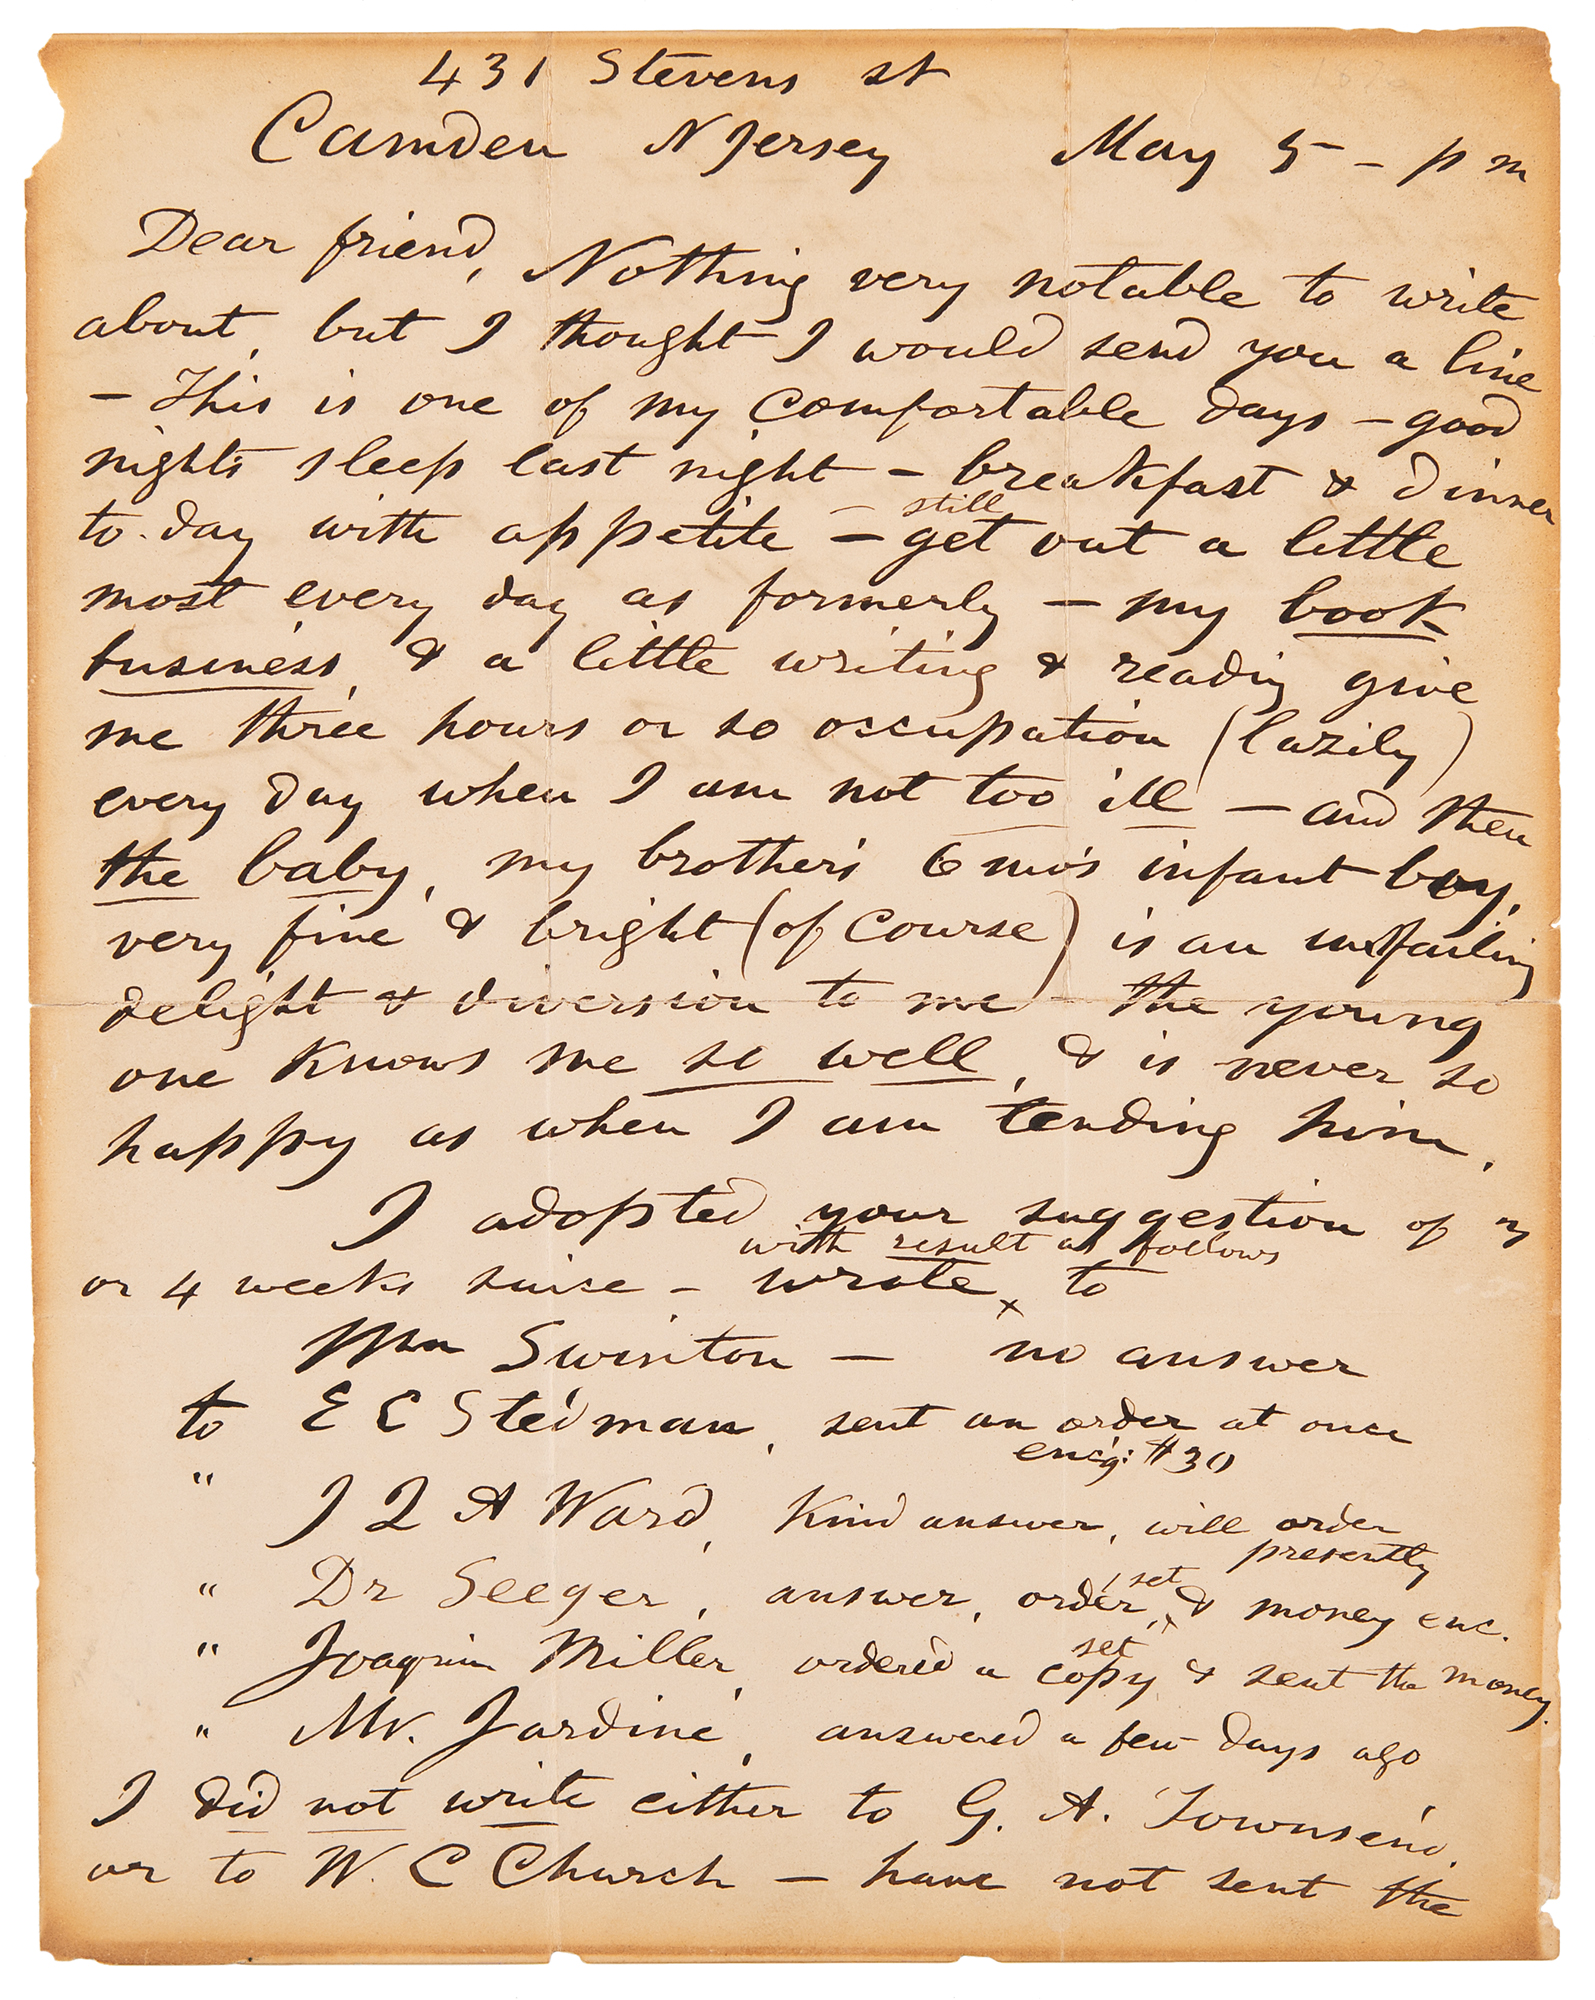 431 Stevens st
Camden N Jersey May 5 – p m
Dear friend, Nothing very notable to write
about, but I thought I would send you a line
– This is one of my comfortable days – good
nights sleep last night – breakfast & dinner
to-day with appetite – still
– get out a little
most every day as formerly – my book
business, & a little writing & reading give
me three hours or so occupation (lazily)
every day when I am not too ill – and then
the baby, my brother's 6 mo's infant boy,
very fine & bright (of course) is an unfailing
delight & diversion to me – the young
one knows me so well, & is never so
happy as when I am tending him.
I adopted your suggestion of 3
with result as follows
or 4 weeks since – wrote to
Wm Swinton – no answer
to E C Stedman, sent an order at once
enc'g: $30
" J Q A Ward, kind answer, will order
presently
set
" Dr Seeger, answer, order, & money enc.
set
" Joaquin Miller, ordered a copy & sent the money.
" Mr. Jardine, answered a few days ago
I did not write either to G. A. Townsend,
or to W. C Church – have not sent the